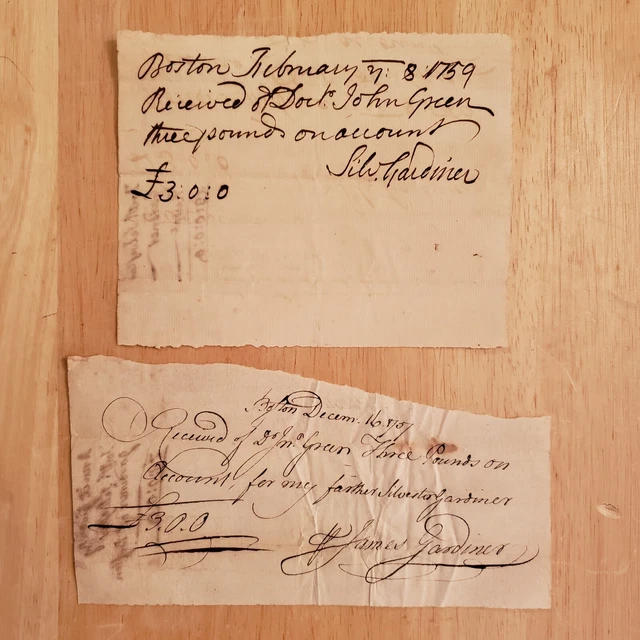 Boston February yͤ 8 1759
Received of Doctͬ John Green
three pounds on account
Silv. Gardiner
£3:0:0
Boston Decem. 16
Received of Dͬ Jnͦ Green Three Pounds on
Account for my farther Silvester Gardiner
£3.0.0
James Gardiner